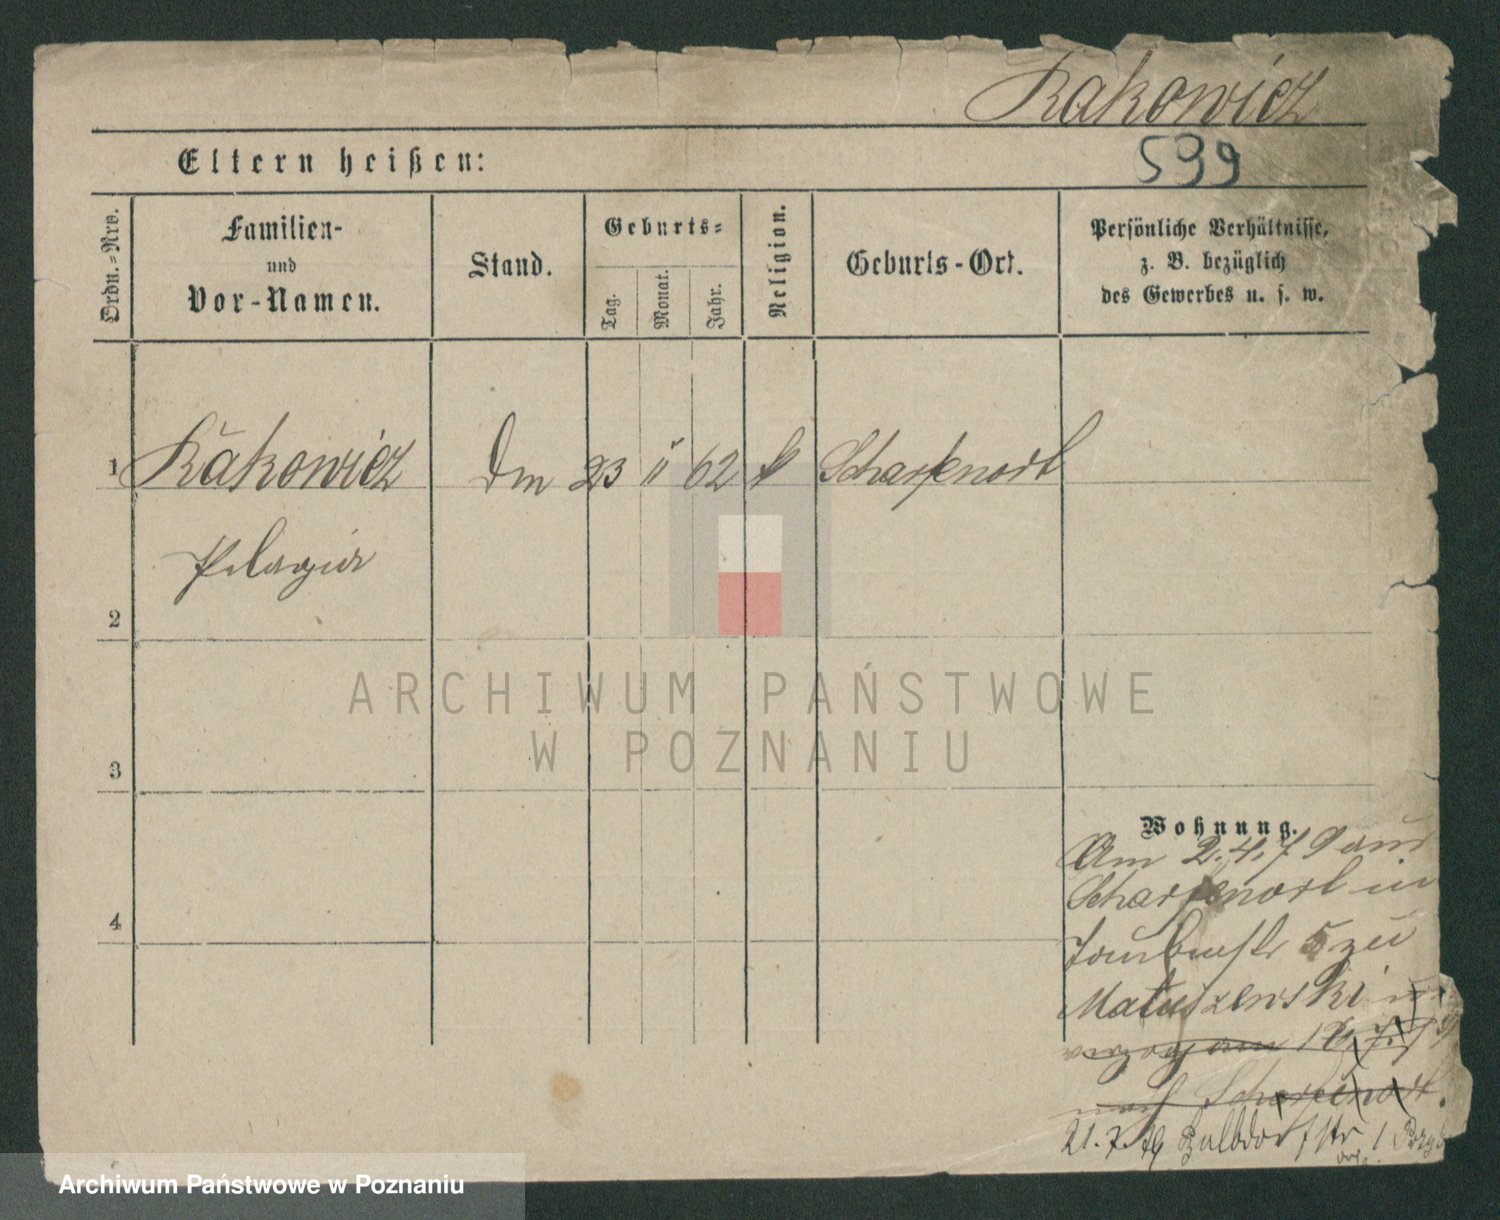 Rakowicz
Eltern heißen:
599
Ordn.-Nro.
Familien-
und
Vor-Namen.
Stand.
Geburts-
Tag.
Monat.
Jahr.
Religion.
Geburts-Ort.
Persönliche Verhältnisse,
z. B. bezüglich
des Gewerbes u. s. w.
1 Rakowicz Dm 23 11 62 k Scharfenort
Pelagia
2
3
4
ARCHIWUM PAŃSTWOWE
W POZNANIU
Wohnung.
Am 2.4.79 aus
Scharfenort in
5 zu
Matuszewski u
verzog am 18.7.79
nach Scharfenort.
21.7.79 Halbdorfstr 1
Archiwum Państwowe w Poznaniu